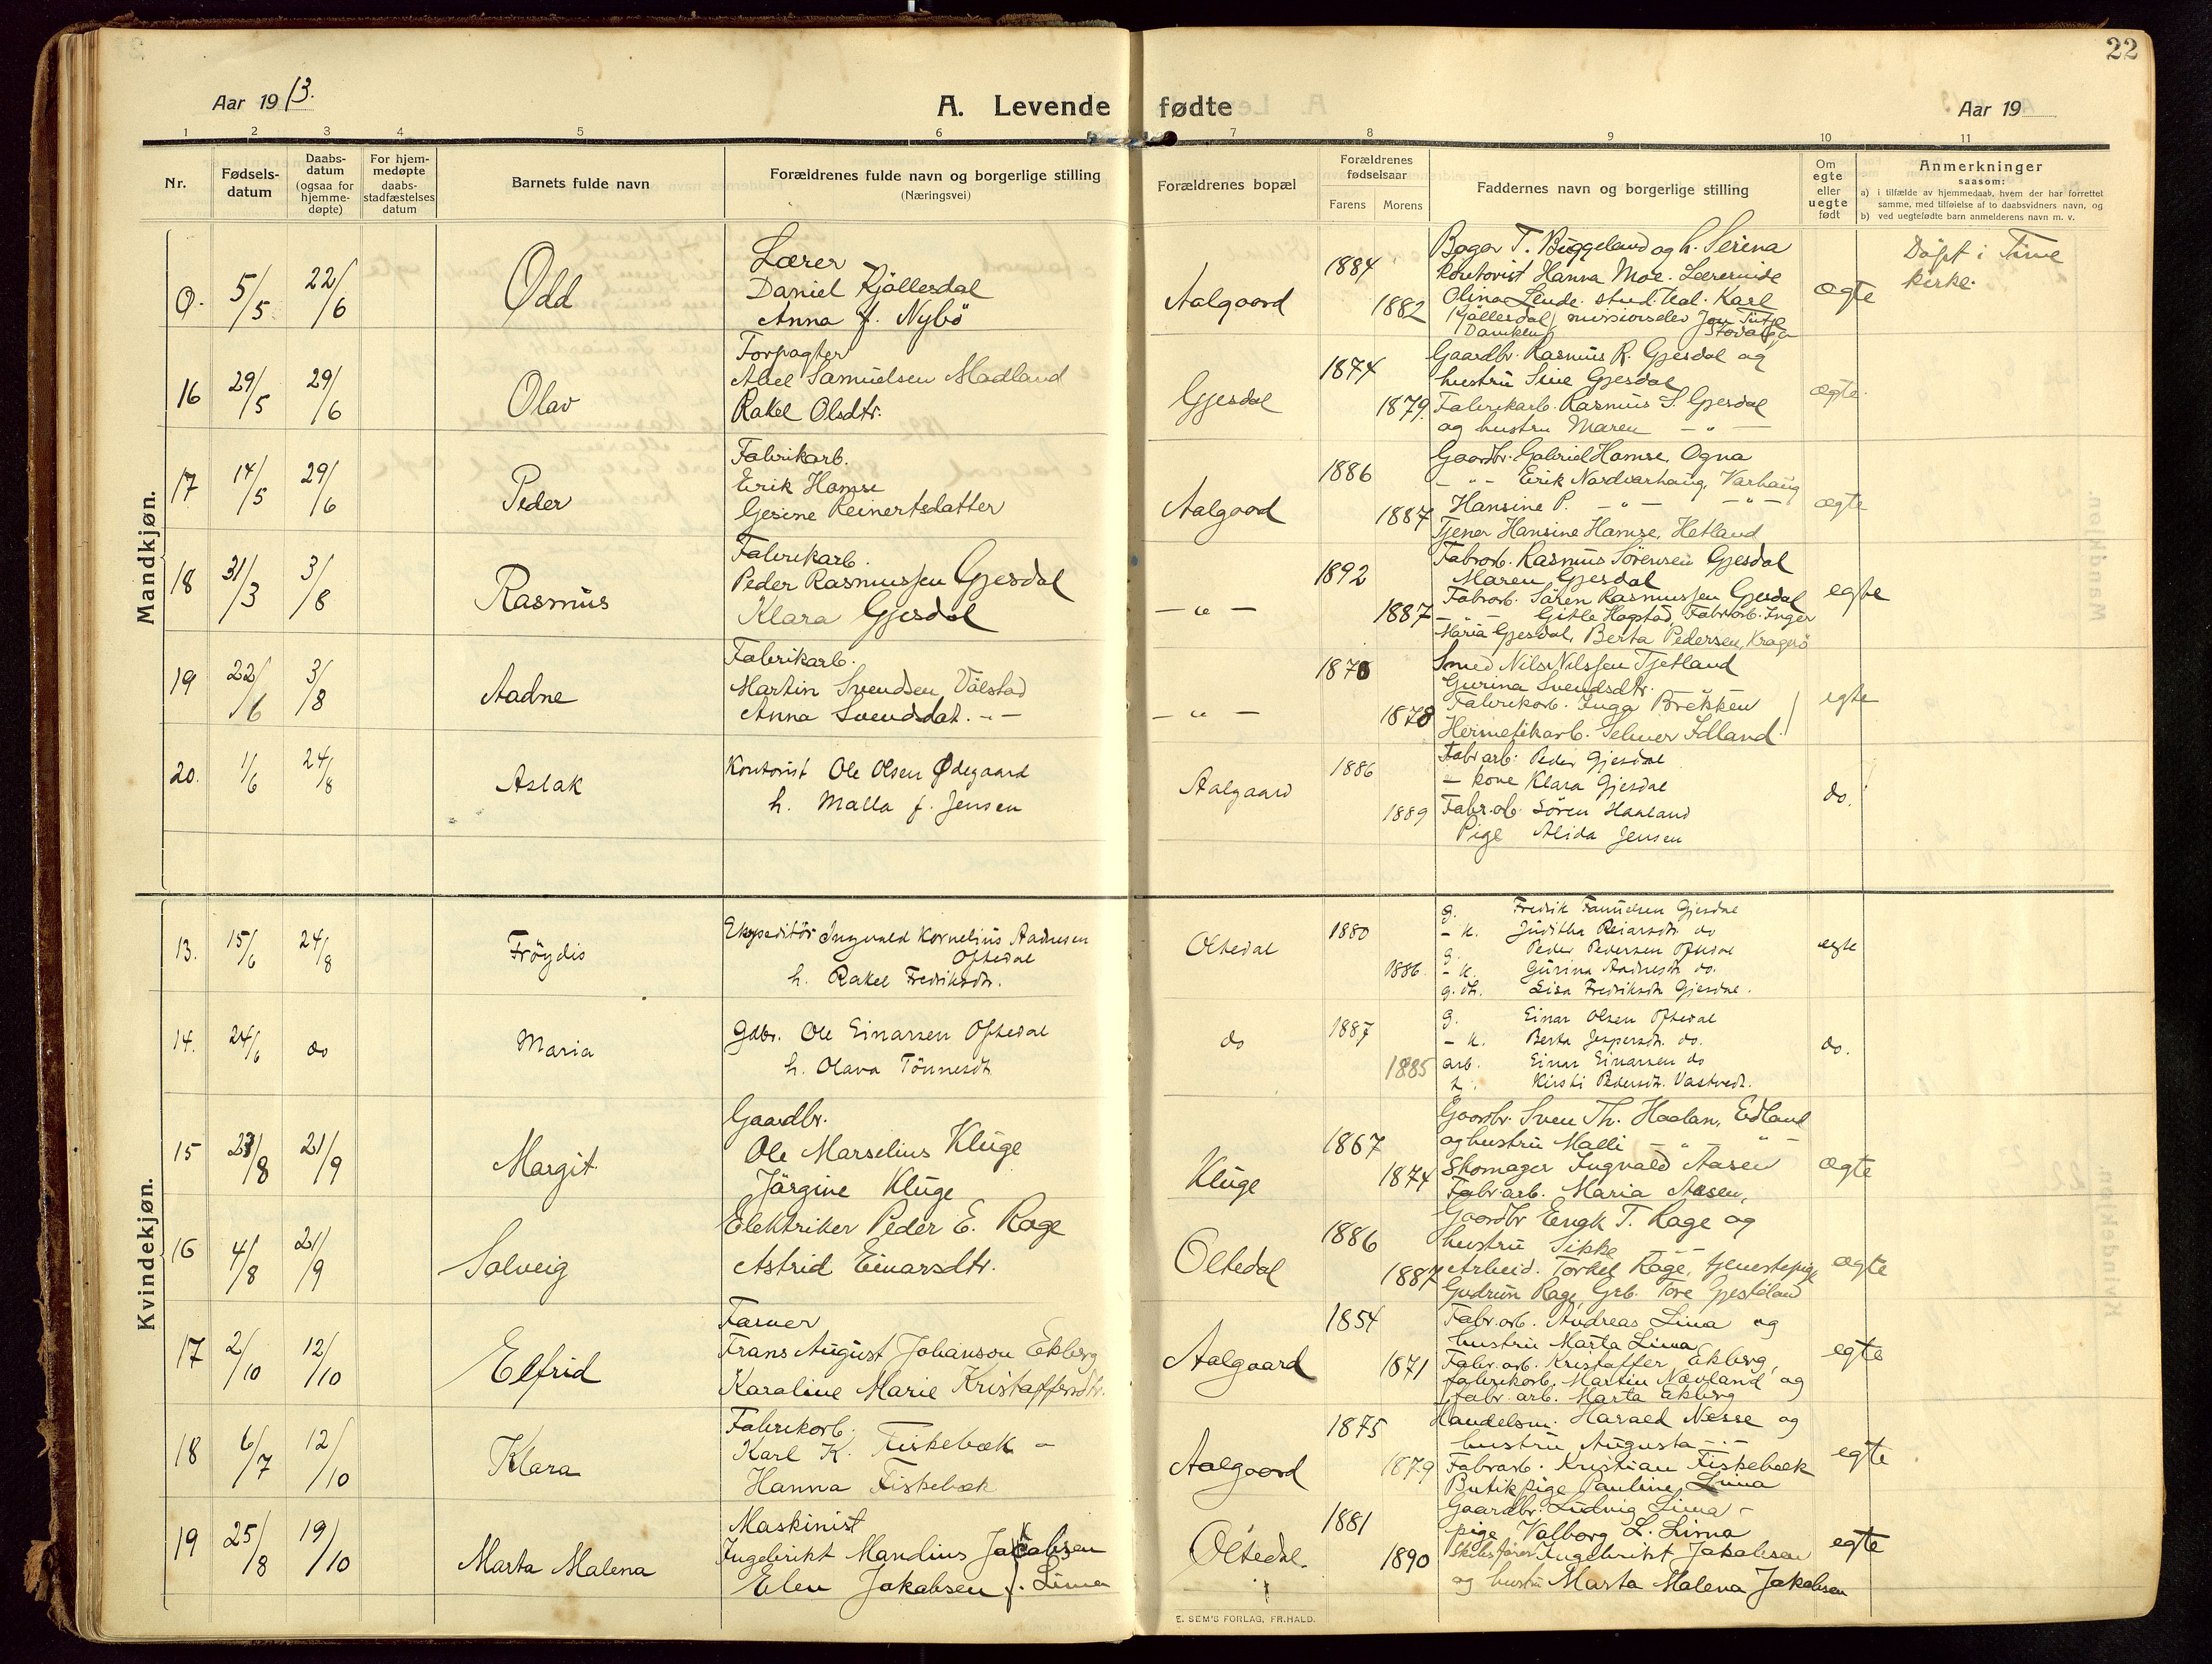 22
Aar 19 13.
A. Levende fødte
Aar 19
1 2 3 4 5 6 7 8 9 10 11
Nr.
Fødsels-
datum
Daabs-
datum
(ogsaa for
hjemme-
døpte)
For hjem-
medøpte
daabs-
stadfæstelses
datum
Barnets fulde navn
Forældrenes fulde navn og borgerlige stilling
(Næringsvei)
Forældrenes bopæl
Forældrenes
fødselsaar
Farens Morens
Faddernes navn og borgerlige stilling
Om
egte
eller
uegte
født
Anmerkninger
saasom:
a) i tilfælde av hjemmedaab, hvem der har forrettet
samme, med tilføielse af to daabsvidners navn, og
b) ved uegtefødte barn anmelderens navn m. v.
Mandkjøn.
0. 5/5 22/6 Odd
Lærer
Daniel Kjøllesdal
Anna f. Nybö
Aalgaard
1884
1882
Bager T. Byggeland og h. Serina
Kontorist Hanna Moe. Lærerinde
Olina Lende. stud. real. Karl
Kjøllesdal, missionselev Jon
ægte
Döpt i Time
kirke.
16 29/5 29/6 Olav
Forpagter
Abel Samuelsen Madland
Rakel Olsdtr.
Gjesdal
1874
1879.
Gaardbr. Rasmus R. Gjesdal og
hustru Sine Gjesdal
Fabrikarb. Rasmus S. Gjesdal
og hustru Maren — " —
ægte
17 14/5 29/6 Peder
Fabrikarb.
Erik Hamre
Gesine Reinertsdatter
Aalgaard
1886
1887
Gaardbr. Gabriel Hamre, Ogna
— " — Erik Nordvarhaug, Varhaug
Hansine P. — " — — " —
Tjener Hansine Hamre, Hetland
ægte
18 31/3 3/8 Rasmus
Fabrikarb.
Peder Rasmussen Gjesdal
Klara Gjesdal
— " —
1892
1887
Fabrarb. Rasmus Sørensen Gjesdal
Maren Gjesdal
Fabrarb. Sören Rasmussen Gjesdal
— " — Gitle Hagstad, Fabrarb. Inger
Maria Gjesdal, Berta Pedersen, Kragerö
egte
19 22/6 3/8 Aadne
Fabrikarb.
Martin Svendsen Välstad
Anna Svendsdat. — " —
— " —
1876
1878
Smed Nils Nilssen Tjetland
Gurina Svendsdtr.
Fabrikarb. Inga Brekken
Hermetikarb. Selmer Idland.
egte
20. 1/6 24/8 Aslak
Kontorist Ole Olsen Ødegaard
h. Malla f. Jensen
Aalgaard
1886
1889
Fabr arb. Peder Gjesdal
— kone Klara Gjesdal
Fabr.arb. Sören Haaland
Pige Alida Jensen
do.
Kvindekjøn.
13. 15/6 24/8 Fröydis
Ekspeditör Ingvald Kornelius Aadnesen
Oftedal
h. Rakel Fredriksdtr.
Oltedal
1880
1886.
g. Fredrik Samuelsen Gjesdal
— k. Juditha Reiarsdtr. do
g. Peder Pedersen Oftedal
— k. Gurina Aadnesdtr. do.
g. dtr. Lisa Fredriksdtr. Gjesdal.
egte
14. 24/6 do Maria
Gdbr. Ole Einarsen Oftedal
h. Olava Tönnesdtr.
do
1887
1885
g. Einar Olsen Oftedal
— k. Berta Jespersdtr. do.
arb. Einar Einarsen do
h. Kirsti Pedersdtr. Vastvedt.
do.
15 23/8 21/9 Margit
Gaardbr.
Ole Marselius Kluge
Jörgine Kluge
Kluge
1867
1874
Gaardbr. Sven Th. Haalan, Edland
og hustru Malli — " — " —
Skomager Ingvald Aasen
Fabr.arb. Maria Aasen,
ægte
16 4/8 21/9 Solveig
Elektriker Peder E. Rage
Astrid Einarsdtr.
Oltedal
1886
1887
Gaardbr Eengk T. Rage og
hustru Sikke — " —
Arbeid. Torkel Rage, tjenestepige
Gudrun Rage, Grb. Tore Gjesdaland
ægte
17 2/10 12/10 Elfrid
Farver
Frans August Johanson Ekberg
Karaline Marie Kristaffersdtr.
Aalgaard
1854
1871
Fabr.arb. Andreas Lima og
hustru Marta Lima
Fabr.arb. Kristaffer Ekberg,
fabrikarb. Martin Nævland og
fabr.arb. Marta Ekberg
egte
18 6/7 12/10 Klara
Fabrikarb.
Karl K. Fiskebæk —
Hanna Fiskebæk
Aalgaard
1875
1879
Handelsm. Harald Nesse og
hustru Augusta — " —
Fabrarb. Kristian Fiskebæk
Butikpige Pauline Lima
egte
19 25/8 19/10 Marta Malena
Maskinist
Ingebrikt Mandius Jakobsen
Elen Jakobsen f. Lima
Oltedal.
1881
1890
Gaardbr. Ludvig Lima —
pige Valborg L. Lima
Skibsfører Ingebrikt Jakobsen
og hustru Marta Malena Jakobsen
egte
E. SEM'S FORLAG, FR.HALD.